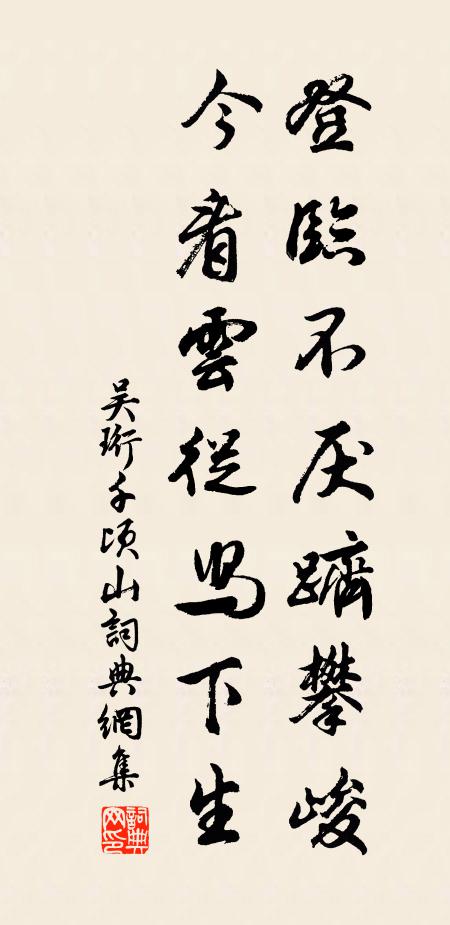 登臨不厌躋攀峻
今看雲從下生
吴珩千頃山詞典網集
詞典网印